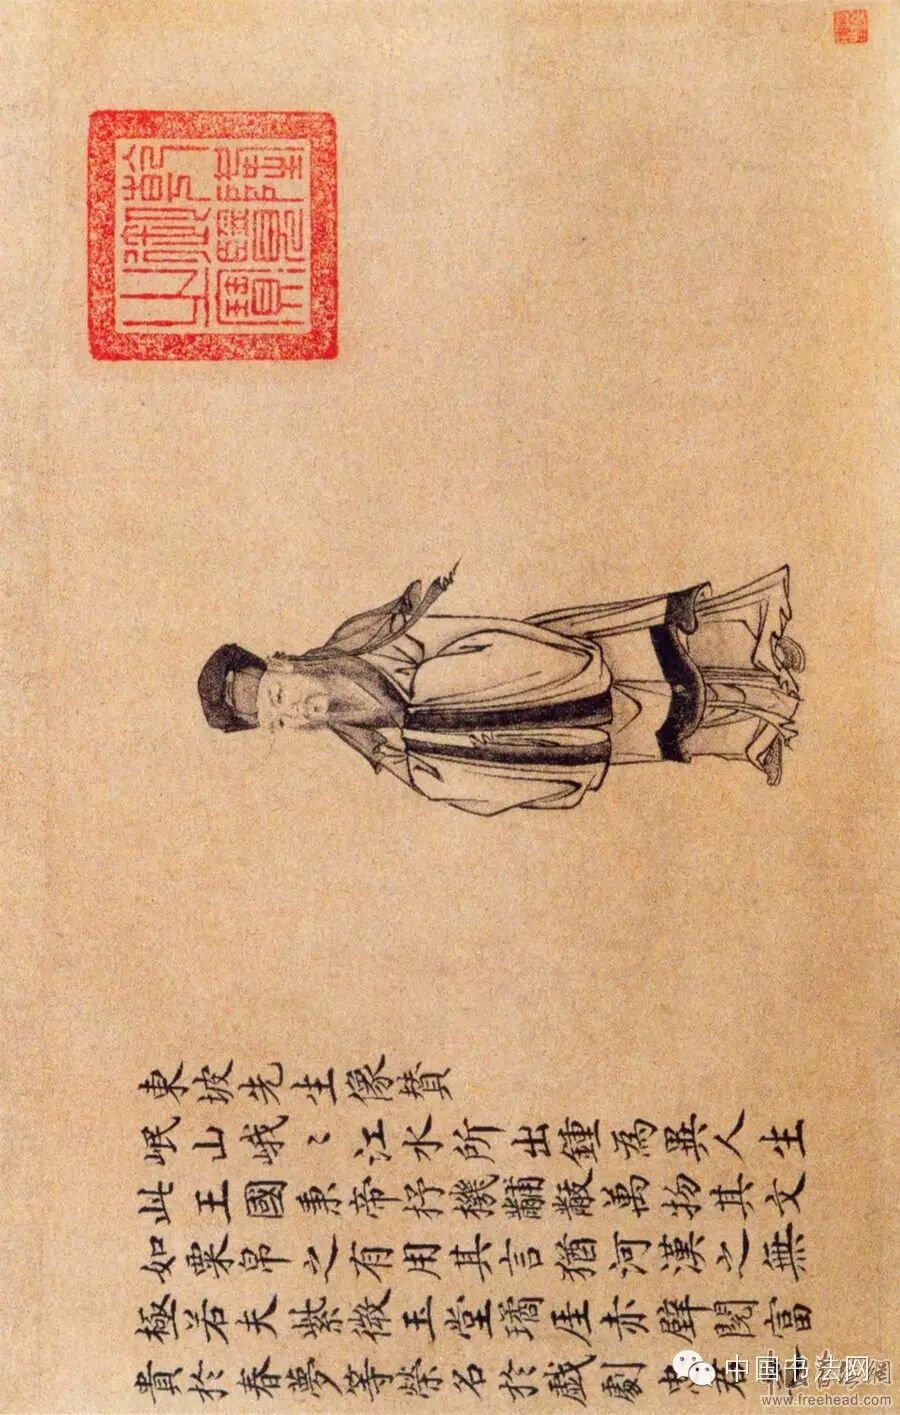 乾隆御覽之寶
東坡先生像贊
岷山峨〻江水所出鍾為異人生
此王國秉帝杼機黼黻萬物其文
如粟帛之有用其言猶河漢之無
極若夫紫微玉堂瓊厓赤壁閱富
貴於春夢等榮名於戲劇忠君
中国书法网
www.freehead.com